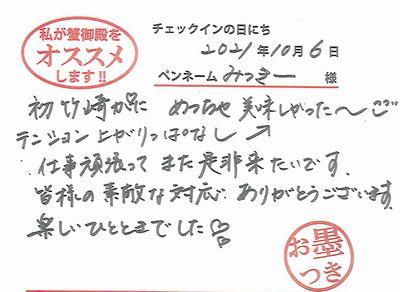 私が蟹御殿を
オススメ
します!!
チェックインの日にち
2021年10月6日
ペンネーム みっきー 様
初竹崎かに めっちゃ美味しかった〜
テンション上がりっぱなし↗
仕事頑張って また是非来たいです。
皆様の素敵な対応 ありがとうございます
楽しいひとときでした♡
お墨
つき